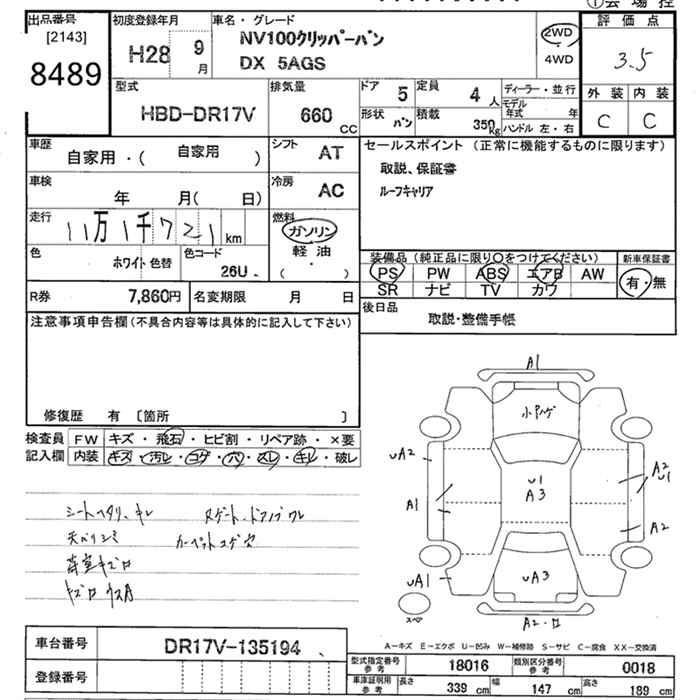 ①会場控
出品番号
[2143]
8489
初度登録年月
H28 9月
車名・グレード
NV100クリッパーバン
DX 5AGS
2WD
・
4WD
評価点
3.5
外装 内装
C C
型式
HBD-DR17V
排気量
660 CC
ドア 5
定員 4人
形状 バン
積載 350kg
ディーラー・並行
モデル年式 年
ハンドル 左・右
車歴
自家用・( 自家用 )
シフト AT
車検
年 月( 日)
冷房 AC
走行
11万1千721km
燃料
ガソリン
軽油
( ・ )
色 ホワイト 色替
色コード 26U
R券 7,860円
名変期限 月 日
セールスポイント (正常に機能するものに限ります)
取説、保証書
ルーフキャリア
装備品(純正品に限り○をつけてください)
PS PW ABS エアB AW
SR ナビ TV カワ
新車保証書
有・無
後日品
取説・整備手帳
注意事項申告欄(不具合内容等は具体的に記入して下さい)
修復歴 有 [箇所 ]
検査員記入欄
FW キズ・飛石・ヒビ割・リペア跡・×要
内装 キズ・汚レ・コゲ・穴・スレ・キレ・破レ
シートヘタリ、キレ
天バリシミ
荷室キズロ
カーペットコゲ穴
A1
小アハゲ
uA2
A1
uA1
u1
A3
A2
u1
A2
uA3
スペア
A2・ロ
A-キズ E-エクボ U-凹み W-補修跡 S-サビ C-腐食 XX-交換済
車台番号 DR17V-135194
登録番号
型式指定番号参考 18016
類別区分番号参考 0018
車庫証明用参考 長さ 339 cm 幅 147 cm 高さ 189 cm